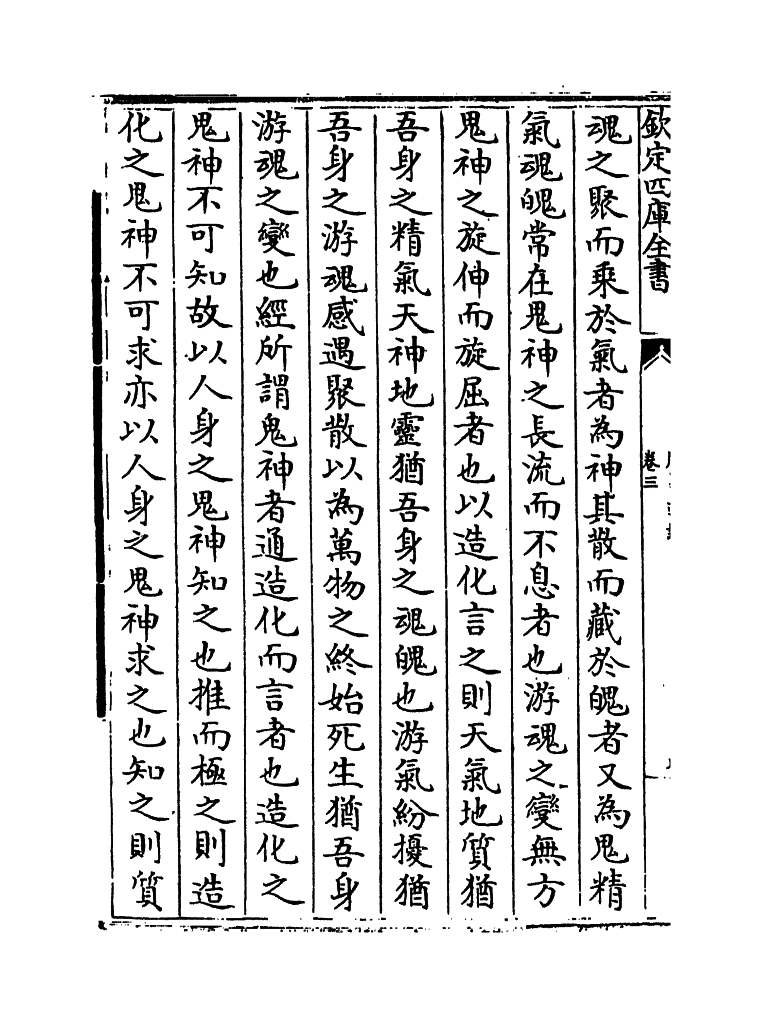 欽定四庫全書
卷三
魂之聚而乘於氣者為神其散而藏於魄者又為鬼精
氣魂魄常在鬼神之長流而不息者也游魂之變無方
鬼神之旋伸而旋屈者也以造化言之則天氣地質猶
吾身之精氣天神地靈猶吾身之魂魄也游氣紛擾猶
吾身之游魂感遇聚散以為萬物之終始死生猶吾身
游魂之變也經所謂鬼神者通造化而言者也造化之
鬼神不可知故以人身之鬼神知之也推而極之則造
化之鬼神不可求亦以人身之鬼神求之也知之則質